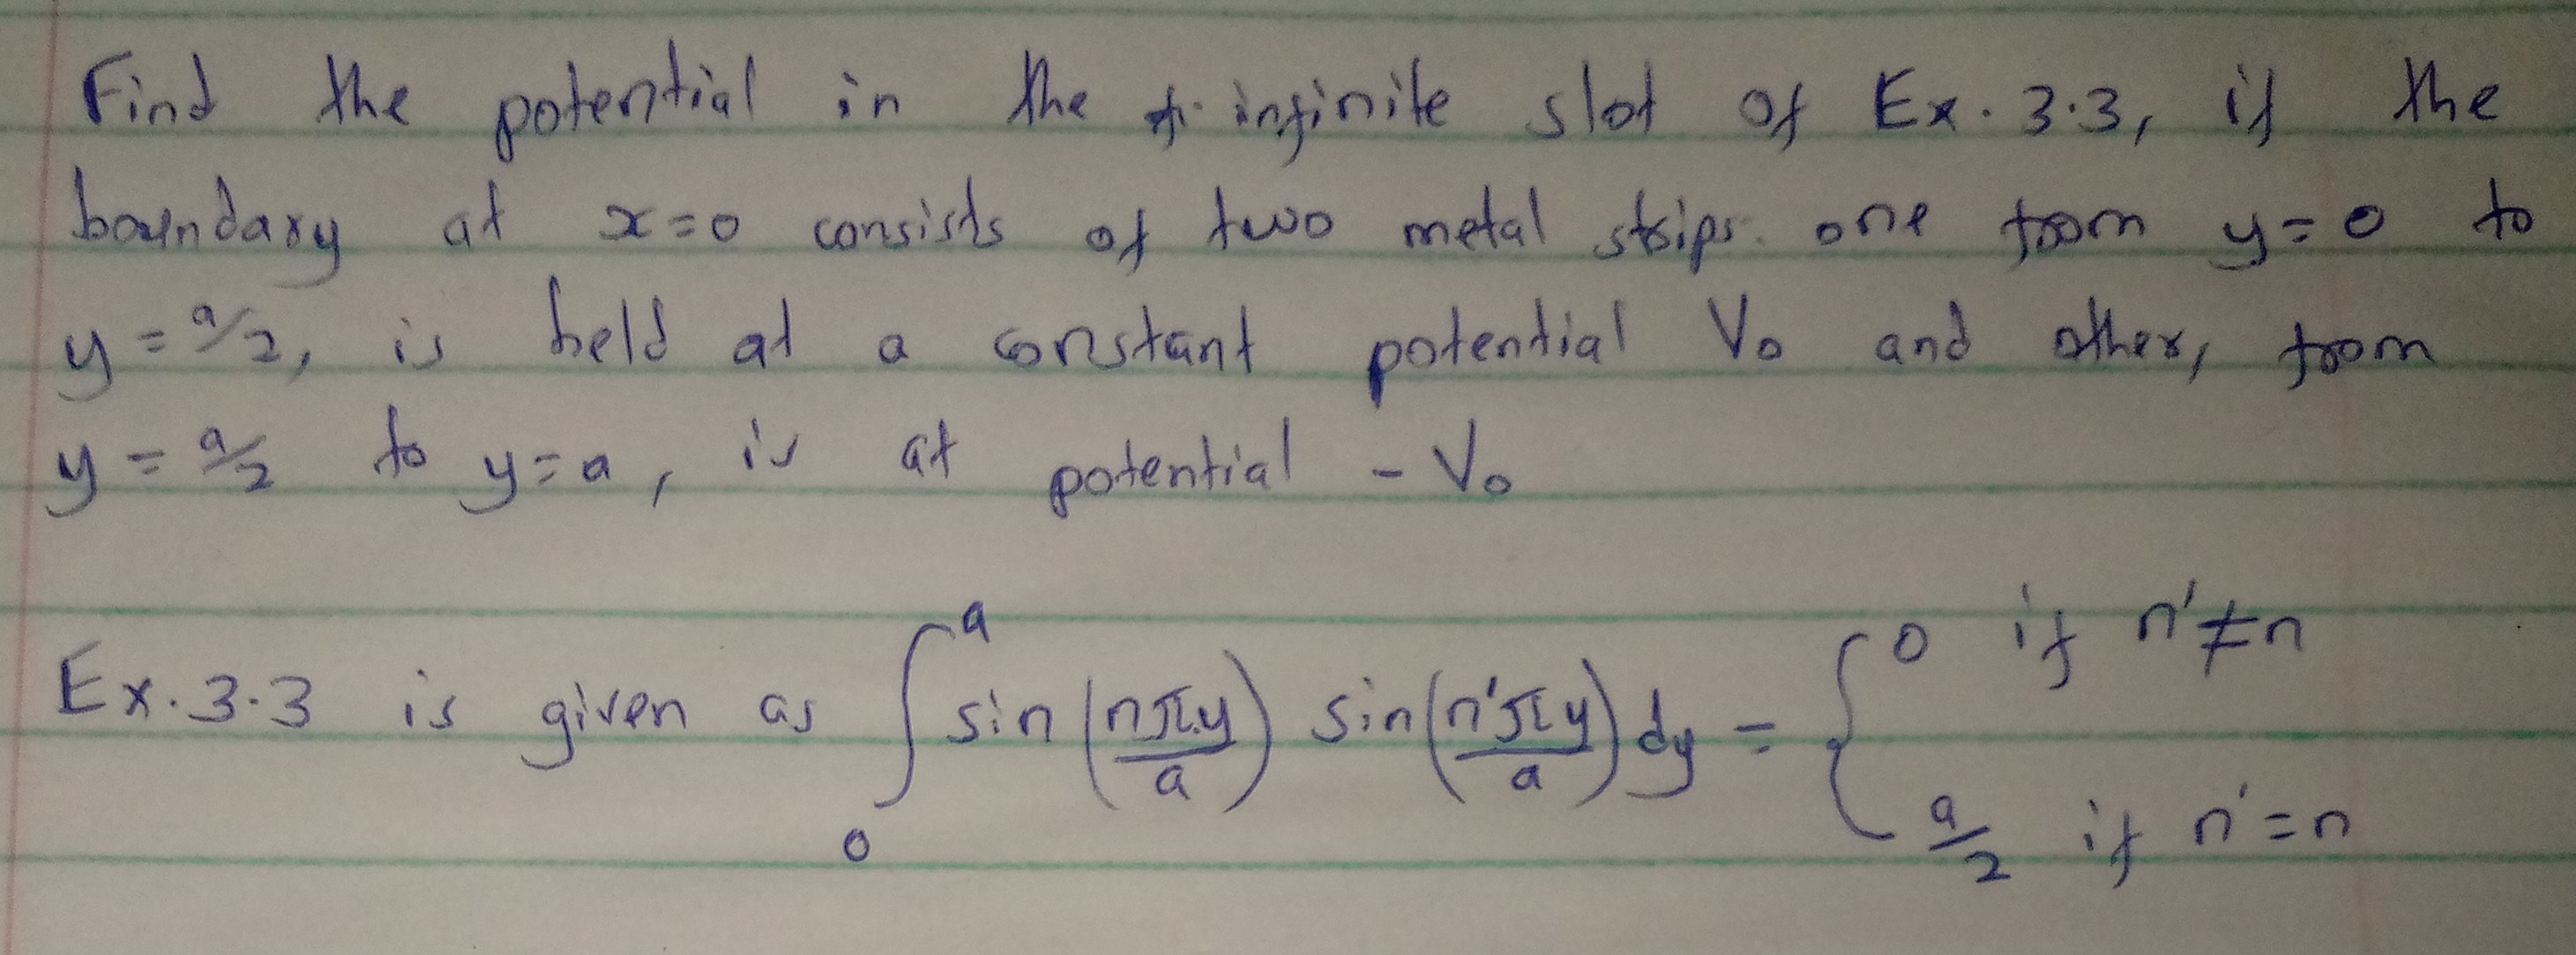 Find the potential in the infinite slot of Ex. 3.3, if the
boundary at x=0 consists of two metal strips. one from y=0 to
y=a/2, is held at a constant potential V₀ and other, from
y=a/2 to y=a, is at potential -V₀
Ex. 3.3 is given as ∫₀ᵃ sin(nπy/a) sin(n'πy/a) dy = { 0 if n'≠n
a/2 if n'=n